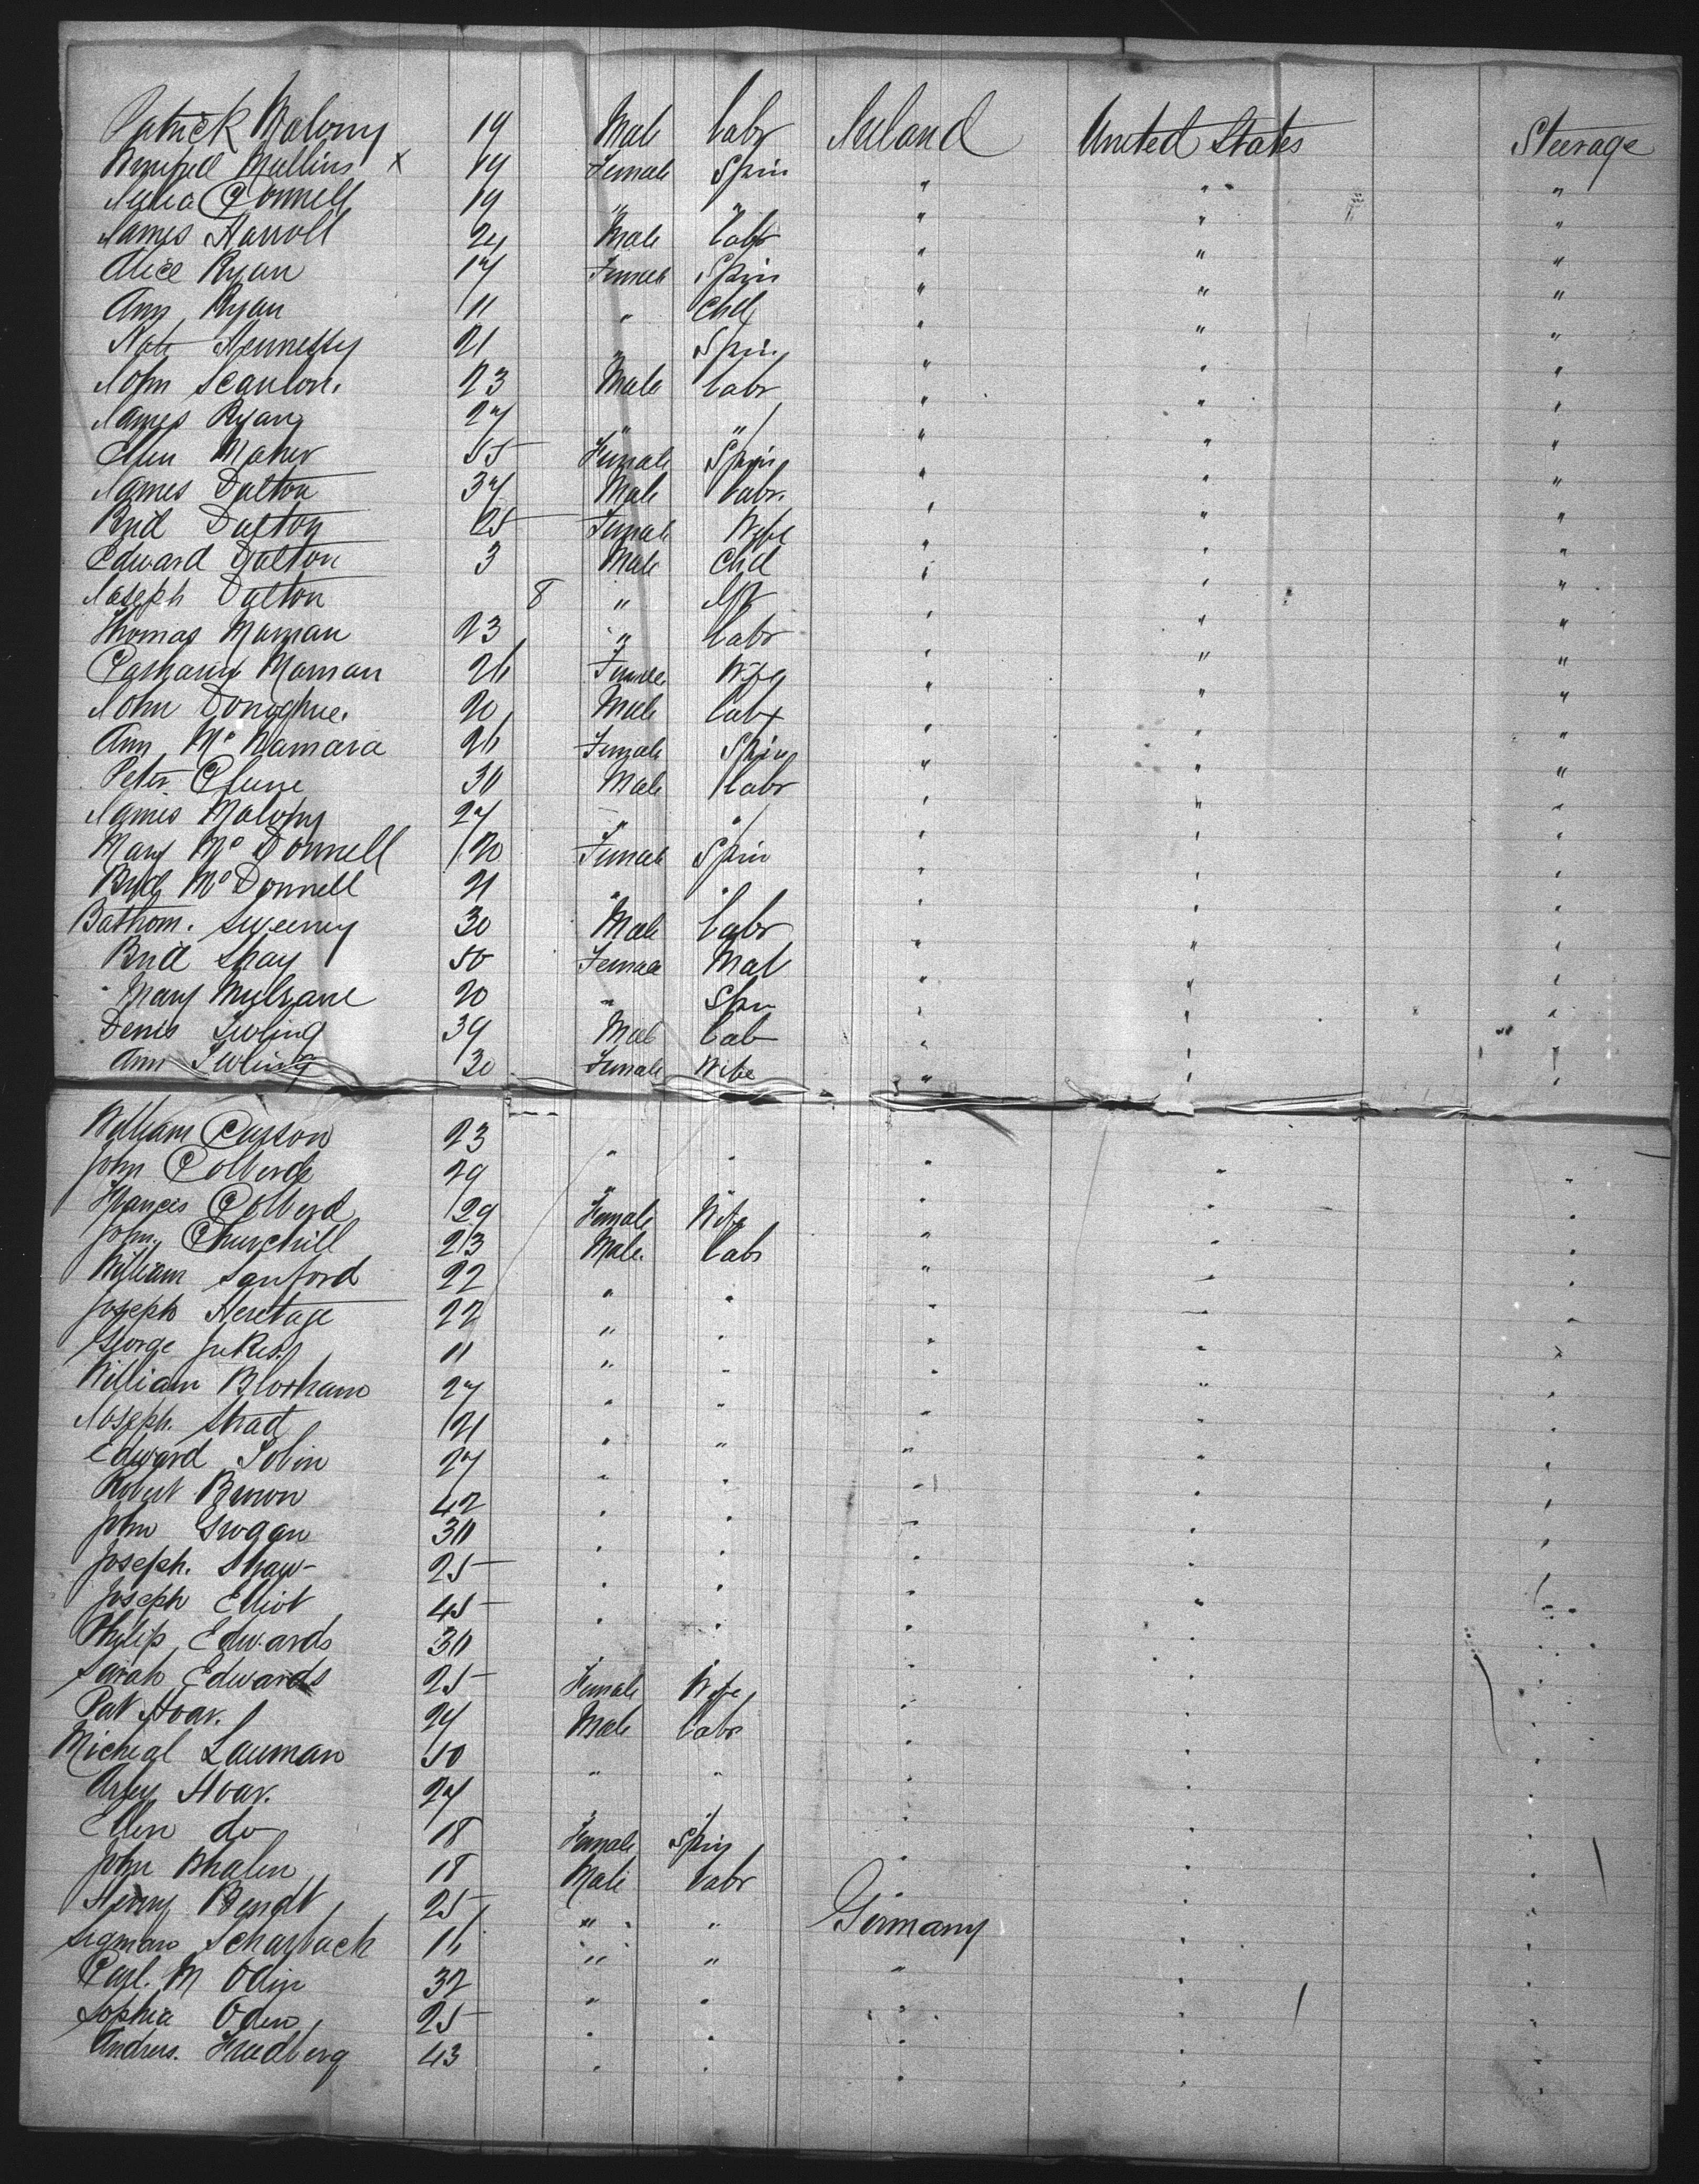 Patrick Malony 19 Male Labr Ireland United States Steerage
Winifred Mullins x 19 Female Spin " " "
Julia Connell 19 " " " " "
James Harroll 24 Male Labr " " "
Alice Ryan 17 Female Spin " " "
Ann Ryan 11 " Chd " " "
Kate Hennessy 21 " Spin " " "
John Scanlon. 23 Male Labr " " "
James Ryan 27 " " " " "
Ellen Maher 55 Female Spin " " "
James Dalton 37 Male Labr. " " "
Brid Dalton 25 Female Wife " " "
Edward Dalton 3 Male Chd " " "
Joseph Dalton 8 " Inf " " "
Thomas Marnan 23 " Labr " " "
Marnan 26 Female Wife " " "
John Donoghue. 20 Male Labr " " "
Ann McNamara 26 Female Spin " " "
Peter Clune 30 Male Labr " " "
James Malony 27 " " " " "
Mary McDonnell 20 Female Spin " " "
Brid McDonnell 21 " " " " "
Bathom. Sweeney 30 Male Labr " " "
Brid Shay 50 Female Mat " " "
Mary Mulrane 20 " Spin " " "
Denis 39 Male Lab " " "
Ann 30 Female Wife " " "
William Curson 23 " " " " "
John 29 " " " " "
Francis 29 Female Wife " " "
John Churchill 23 Male. Labr " " "
William Sanford 22 " " " " "
Joseph Heretage 22 " " " " "
George Jukes. 11 " " " " "
William Bloxham 27 " " " " "
Joseph. Strad 21 " " " " "
Edward Tobin 27 " " " " "
Robert Brown 42 " " " " "
John Grogan 30 " " " " "
Joseph. Shaw 25 " " " " "
Joseph Elliot 45 " " " " "
Philip Edwards 30 " " " " "
Sarah Edwards 25 Female Wife " " "
Pat Hoar. 24 Male Labr " " "
Micheal Lauman 50 " " " " "
Hoar. 27 " " " " "
Ellen do 18 Female Spin " " "
John Whalen 18 Male Labr " " "
Henry Bendt 25 " " Germany " "
Sigman 16 " " " " "
Carl. M Odin 32 " " " " "
Sophia Oden 25 " " " " "
Andrus. Friedberg 43 " " " " "